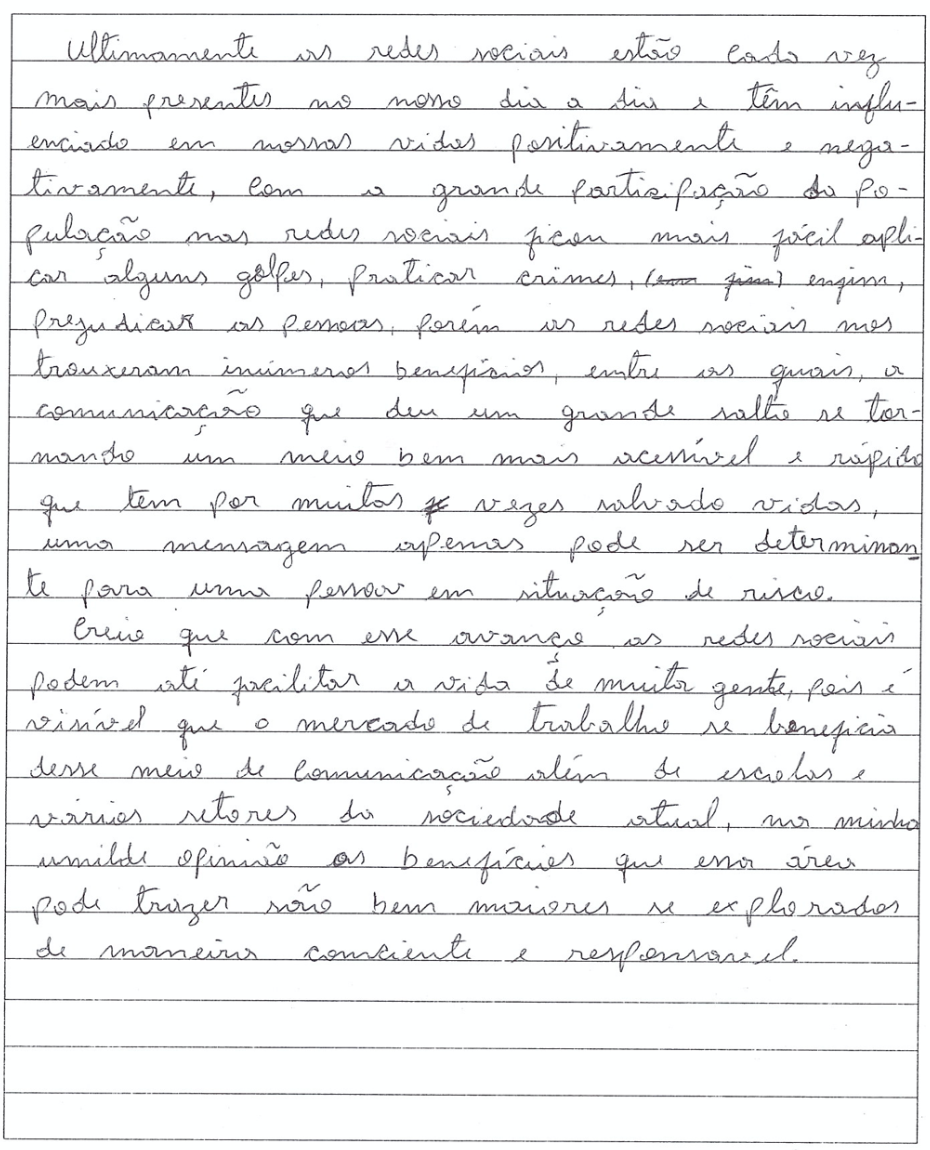 Ultimamente as redes sociais estão cada vez
mais presentes no nosso dia a dia e têm influ-
enciado em nossas vidas positivamente e nega-
tivamente, com a grande participação da po-
pulação nas redes sociais ficou mais fácil apli-
car alguns golpes, praticar crimes, (em fim) enfim,
prejudicar as pessoas, porém as redes sociais nos
trouxeram inúmeros benefícios, entre as quais, a
comunicação que deu um grande salto se tor-
nando um meio bem mais acessível e rápido
que tem por muitas vezes salvado vidas,
uma mensagem apenas pode ser determinan
te para uma pessoa em situação de risco.
Creio que com esse avanço as redes sociais
podem até facilitar a vida de muita gente, pois é
visível que o mercado de trabalho se beneficia
desse meio de comunicação além de escolas e
vários setores da sociedade atual, na minha
umilde opinião os benefícios que essa área
pode trazer são bem maiores se explorados
de maneira consciente e responsavel.